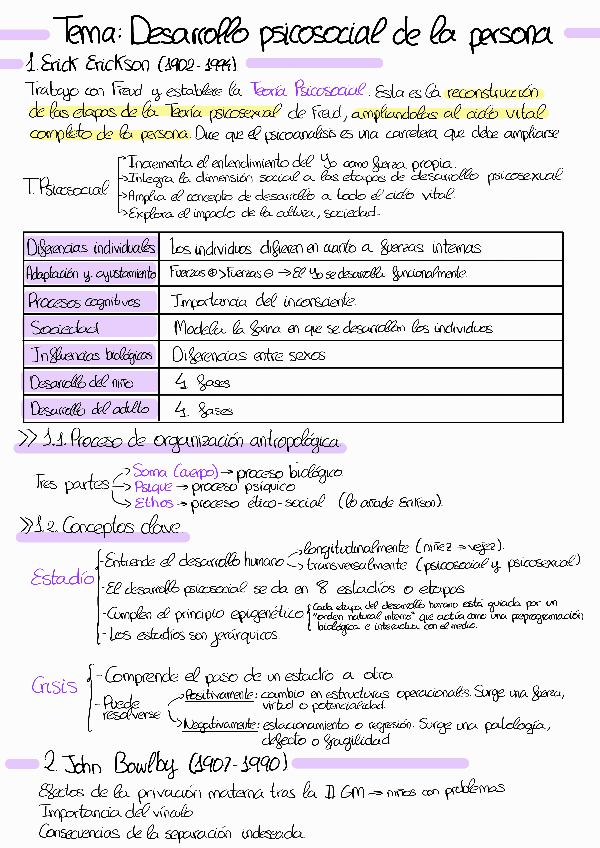 Tema: Desarrollo psicosocial de la persona
1. Erick Erickson (1902-1994)
Trabajo con Freud y establece la Teoría Psicosocial. Esta es la reconstrucción
de las etapas de la Teoría psicosexual de Freud, ampliandolas al ciclo vital
completo de la persona. Dice que el psicoanálisis es una carretera que debe ampliarse
T. Psicosocial
Incrementa el entendimiento del Yo como fuerza propia.
→ Integra la dimensión social a las etapas de desarrollo psicosexual
→ Amplia el concepto de desarrollo a todo el ciclo vital.
→ Explora el impacto de la cultura, sociedad.
Diferencias individuales Los individuos difieren en cuanto a fuerzas internas
Adaptación y ajustamiento Fuerzas ⊕ > Fuerzas ⊖ → El Yo se desarrolla funcionalmente
Procesos cognitivos Importancia del inconsciente
Sociedad Modela la forma en que se desarrollan los individuos
Influencias biológicas Diferencias entre sexos
Desarrollo del niño 4 fases
Desarrollo del adulto 4 fases
>> 1.1. Proceso de organización antropológica
Tres partes
→ Soma (cuerpo) → proceso biológico
→ Psique → proceso psíquico
→ Ethos → proceso ético-social (lo añade Erikson).
>> 1.2. Conceptos clave
Estadio
- Entiende el desarrollo humano
→ longitudinalmente (niñez → vejez).
→ transversalmente (psicosocial y psicosexual)
- El desarrollo psicosocial se da en 8 estadíos o etapas
- Cumplen el principio epigenético
Cada etapa del desarrollo humano está guiada por un
"orden natural interno" que actúa como una preprogramación
biológica e interactua con el medio.
- Los estudios son jerárquicos.
Crisis
- Comprende el paso de un estadío a otro
- Puede resolverse
→ Positivamente: cambio en estructuras operacionales. Surge una fuerza,
virtud o potencialidad.
→ Negativamente: estacionamiento o regresión. Surge una patología,
defecto o fragilidad
2. John Bowlby (1907-1990)
Efectos de la privación materna tras la II GM → niños con problemas
Importancia del vínculo
Consecuencias de la separación indeseada